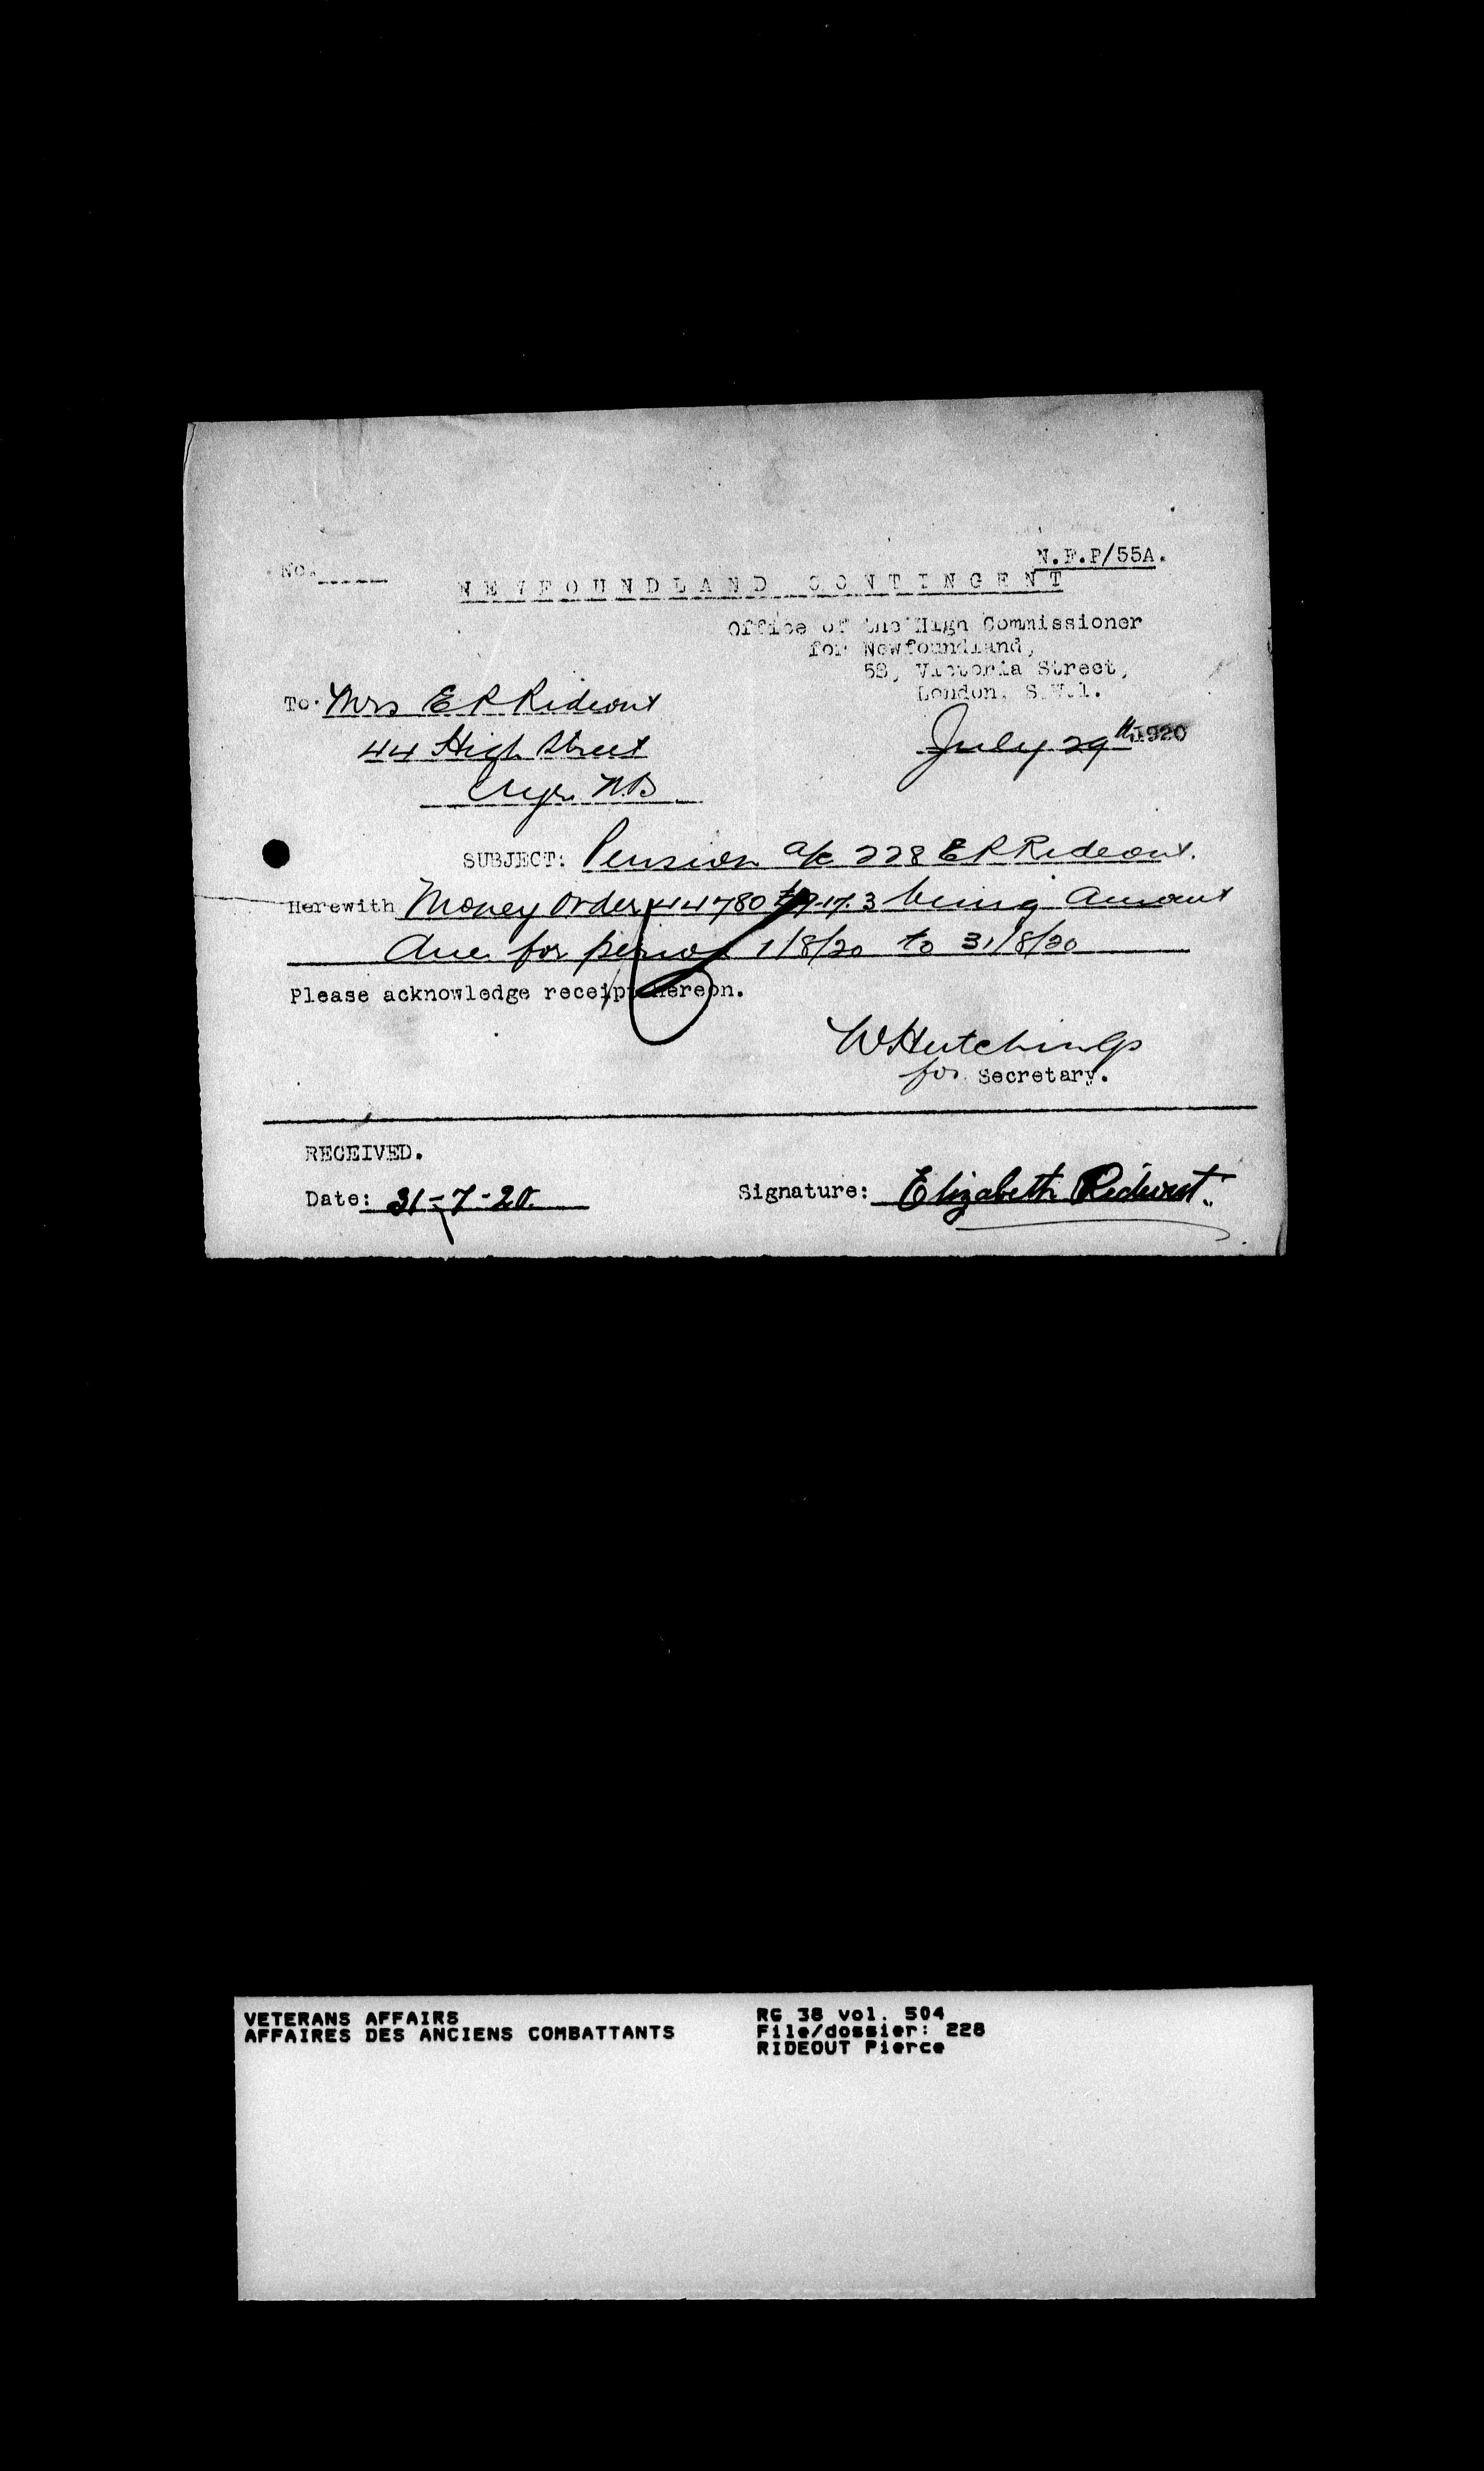 No.
N.F.P/55A.
NEWFOUNDLAND CONTINGENT
Office of the High Commissioner
for Newfoundland,
58, Victoria Street,
London, S.W.1.
To. Mrs E R Rideout
44 High Street
Ayr N.B
July 29th 1920
SUBJECT: Pension a/c 228 E R Rideout.
Herewith Money Order 44780 being amount
due for period 1/8/20 to 31/8/20
Please acknowledge receipt hereon.
W Hutchings
for Secretary.
RECEIVED.
Date: 31-7-20.
Signature: Elizabeth Rideout.
VETERANS AFFAIRS
AFFAIRES DES ANCIENS COMBATTANTS
RG 38 vol. 504
File/dossier: 228
RIDEOUT Pierce